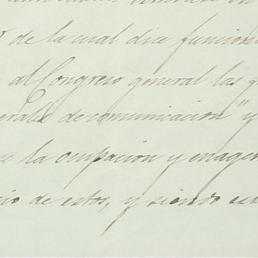 de la cual dice funcion
al Congreso general las
erales de comunicacion" y
la ocupacion y enagen
io de estos, y siendo est